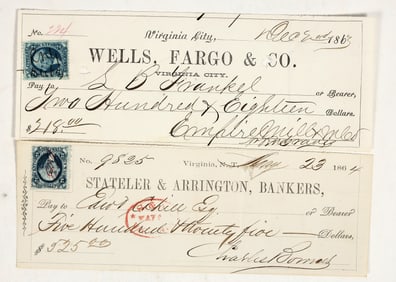 No. 224 Virginia City, Dec 2nd 1863
WELLS, FARGO & CO.
VIRGINIA CITY.
Pay to L B Frankel or Bearer,
Two Hundred & Eighteen Dollars.
$218.00 Empire Mill & M Co
No. 9835 Virginia, N.T. May 23 1864
STATELER & ARRINGTON, BANKERS,
Pay to Edwd Esq or Bearer
Five Hundred & twenty five Dollars,
$525.00 Charles Bonner